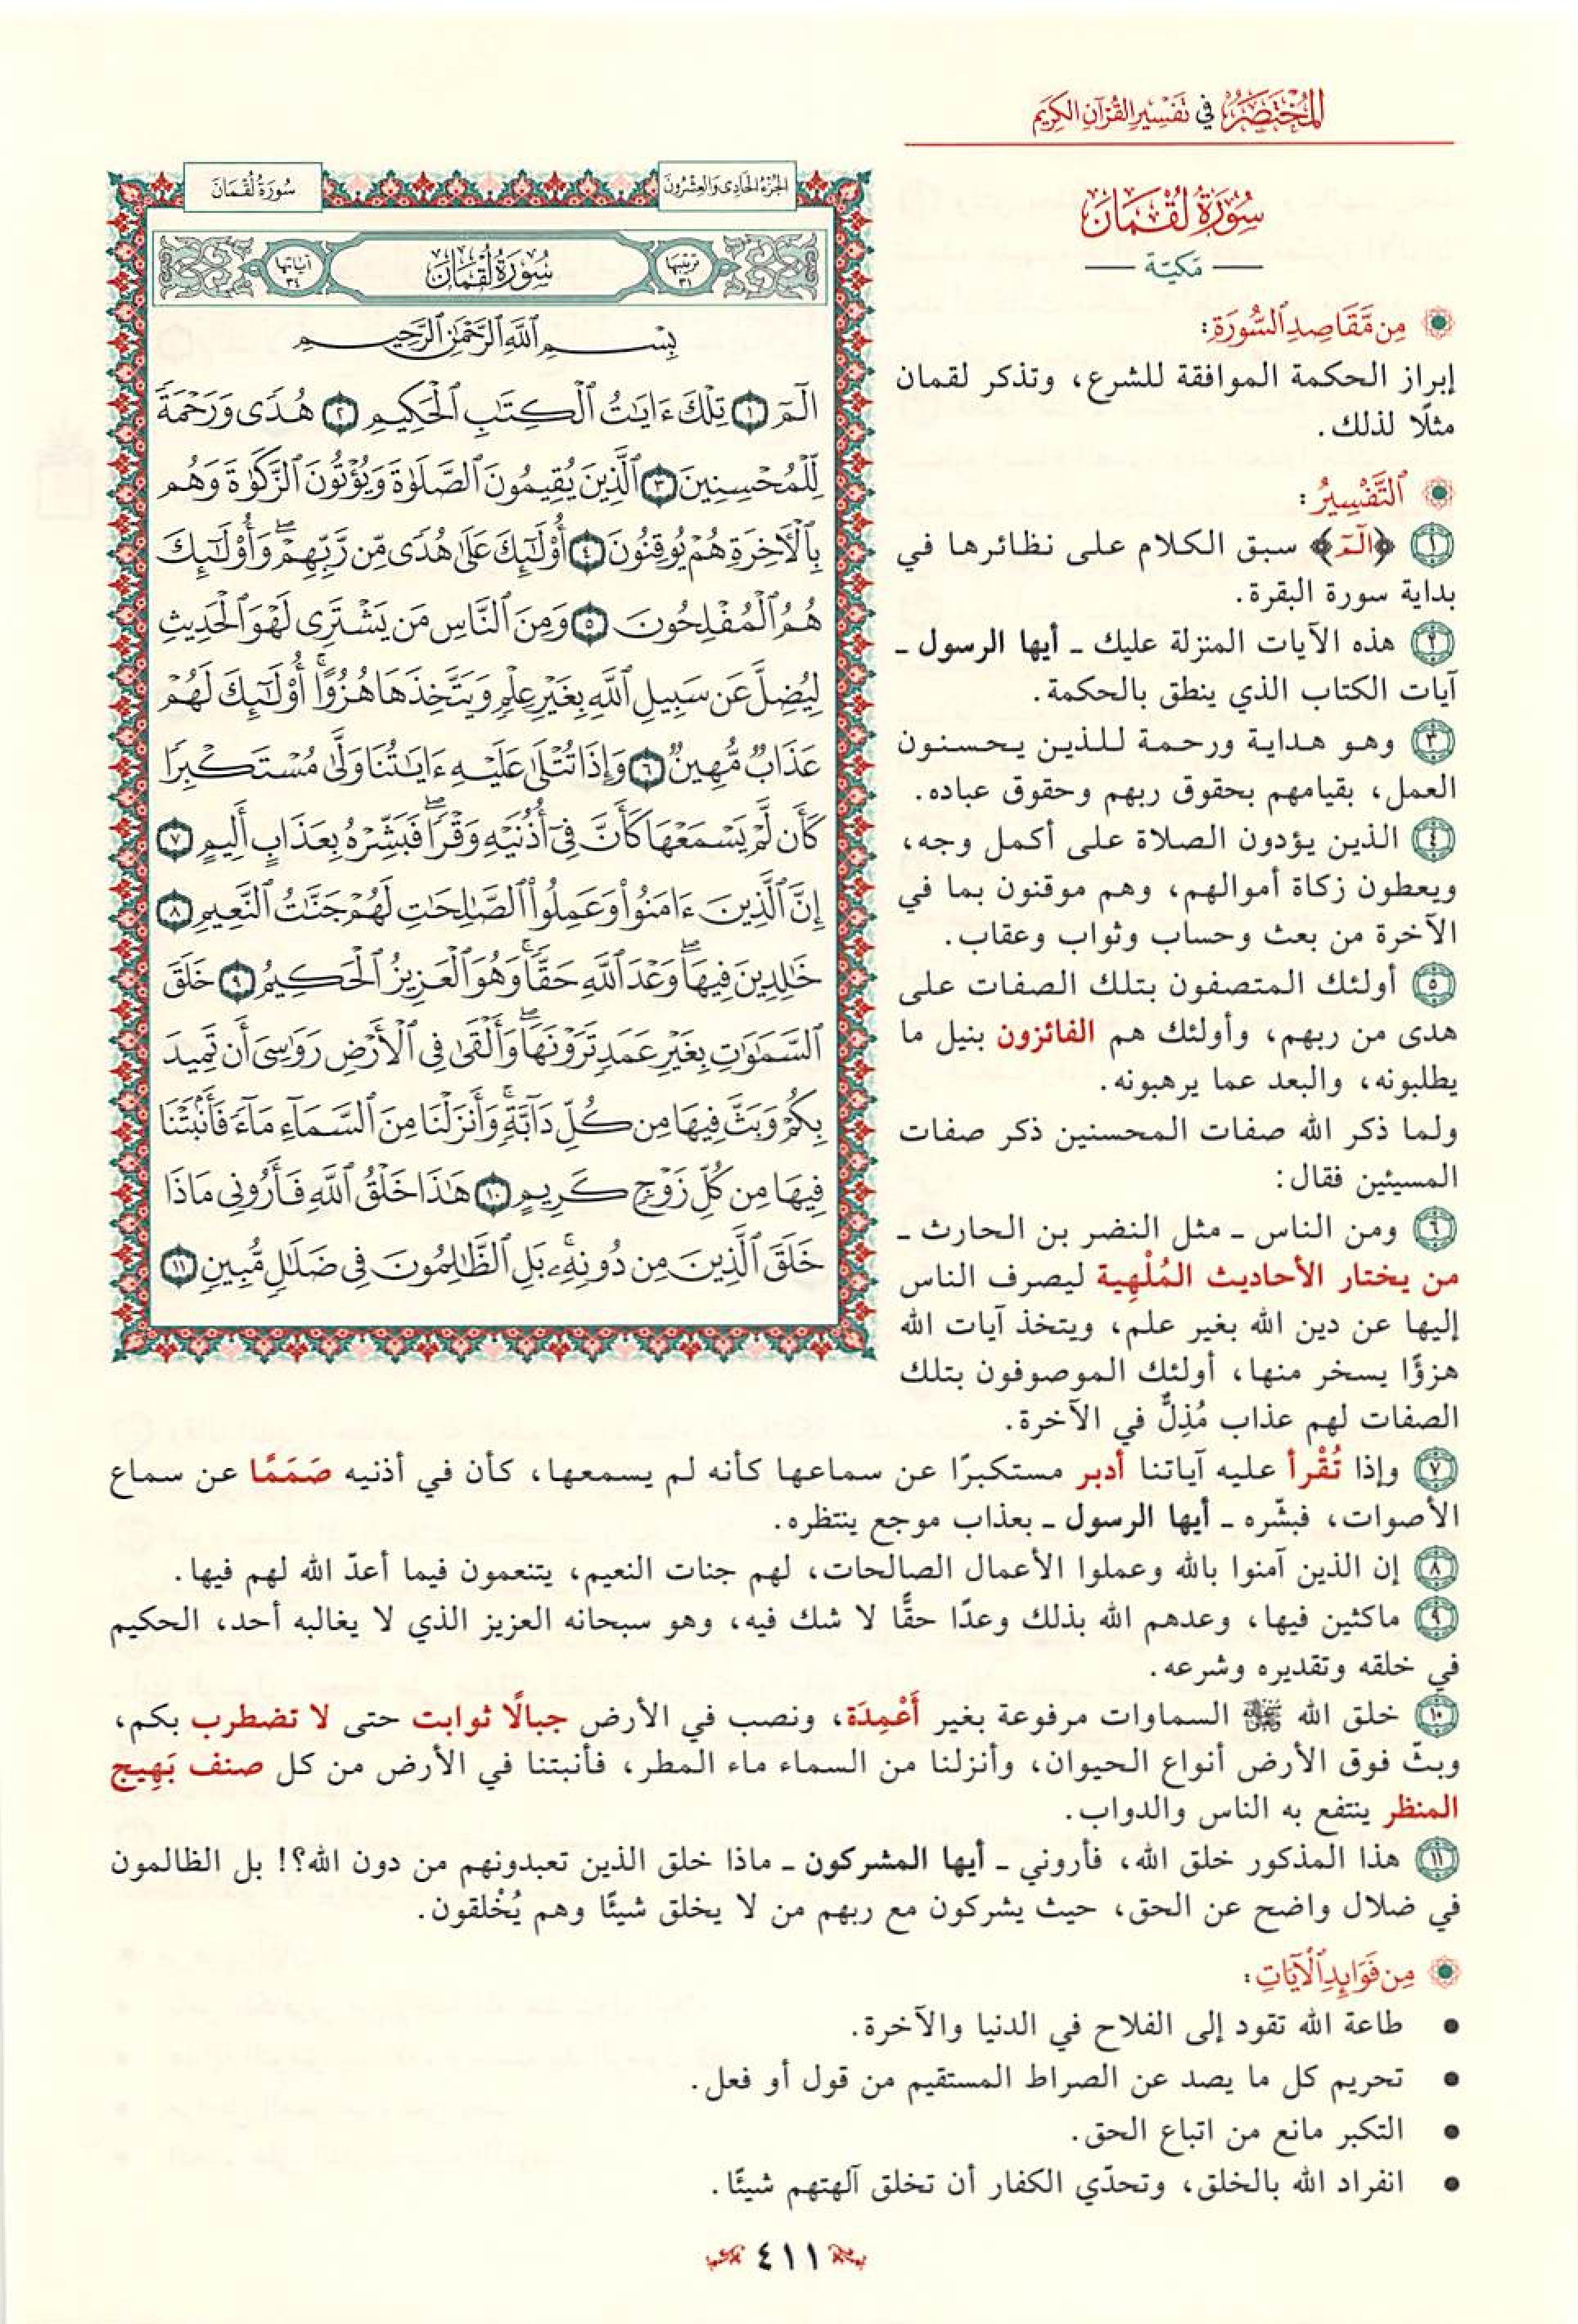 المُخْتَصَرُ في تَفْسِيرِ القُرْآنِ الكَرِيم
سُورَةُ لُقْمَانَ
مَكيّة
مِن مَّقَاصِدِ ٱلسُّورَةِ:
إبراز الحكمة الموافقة للشرع، وتذكر لقمان
مثلًا لذلك.
ٱلتَّفْسِيرُ:
١ ﴿الٓمٓ﴾ سبق الكلام على نظائرها في
بداية سورة البقرة.
٢ هذه الآيات المنزلة عليك ـ أيها الرسول ـ
آيات الكتاب الذي ينطق بالحكمة.
٣ وهو هداية ورحمة للذين يحسنون
العمل، بقيامهم بحقوق ربهم وحقوق عباده.
٤ الذين يؤدون الصلاة على أكمل وجه،
ويعطون زكاة أموالهم، وهم موقنون بما في
الآخرة من بعث وحساب وثواب وعقاب.
٥ أولئك المتصفون بتلك الصفات على
هدى من ربهم، وأولئك هم الفائزون بنيل ما
يطلبونه، والبعد عما يرهبونه.
ولما ذكر الله صفات المحسنين ذكر صفات
المسيئين فقال:
٦ ومن الناس ـ مثل النضر بن الحارث ـ
من يختار الأحاديث المُلْهِية ليصرف الناس
إليها عن دين الله بغير علم، ويتخذ آيات الله
هزؤًا يسخر منها، أولئك الموصوفون بتلك
الصفات لهم عذاب مُذِلٌّ في الآخرة.
الجُزْءُ الحَادِي وَالعِشْرُونَ
سُورَةُ لُقْمَانَ
ترتيبها ٣١
سُورَةُ لُقْمَانَ
آياتها ٣٤
بِسْمِ ٱللَّهِ ٱلرَّحْمَٰنِ ٱلرَّحِيمِ
الٓمٓ ١ تِلْكَ ءَايَٰتُ ٱلْكِتَٰبِ ٱلْحَكِيمِ ٢ هُدًى وَرَحْمَةً
لِّلْمُحْسِنِينَ ٣ ٱلَّذِينَ يُقِيمُونَ ٱلصَّلَوٰةَ وَيُؤْتُونَ ٱلزَّكَوٰةَ وَهُم
بِٱلْأَخِرَةِ هُمْ يُوقِنُونَ ٤ أُوْلَٰٓئِكَ عَلَىٰ هُدًى مِّن رَّبِّهِمْۖ وَأُوْلَٰٓئِكَ
هُمُ ٱلْمُفْلِحُونَ ٥ وَمِنَ ٱلنَّاسِ مَن يَشْتَرِى لَهْوَ ٱلْحَدِيثِ
لِيُضِلَّ عَن سَبِيلِ ٱللَّهِ بِغَيْرِ عِلْمٍ وَيَتَّخِذَهَا هُزُوًاۚ أُوْلَٰٓئِكَ لَهُمْ
عَذَابٌ مُّهِينٌ ٦ وَإِذَا تُتْلَىٰ عَلَيْهِ ءَايَٰتُنَا وَلَّىٰ مُسْتَكْبِرًا
كَأَن لَّمْ يَسْمَعْهَا كَأَنَّ فِىٓ أُذُنَيْهِ وَقْرًاۖ فَبَشِّرْهُ بِعَذَابٍ أَلِيمٍ ٧
إِنَّ ٱلَّذِينَ ءَامَنُواْ وَعَمِلُواْ ٱلصَّٰلِحَٰتِ لَهُمْ جَنَّٰتُ ٱلنَّعِيمِ ٨
خَٰلِدِينَ فِيهَاۖ وَعْدَ ٱللَّهِ حَقًّاۚ وَهُوَ ٱلْعَزِيزُ ٱلْحَكِيمُ ٩ خَلَقَ
ٱلسَّمَٰوَٰتِ بِغَيْرِ عَمَدٍ تَرَوْنَهَاۖ وَأَلْقَىٰ فِى ٱلْأَرْضِ رَوَٰسِىَ أَن تَمِيدَ
بِكُمْ وَبَثَّ فِيهَا مِن كُلِّ دَآبَّةٍۚ وَأَنزَلْنَا مِنَ ٱلسَّمَآءِ مَآءً فَأَنۢبَتْنَا
فِيهَا مِن كُلِّ زَوْجٍ كَرِيمٍ ١٠ هَٰذَا خَلْقُ ٱللَّهِ فَأَرُونِى مَاذَا
خَلَقَ ٱلَّذِينَ مِن دُونِهِۦۚ بَلِ ٱلظَّٰلِمُونَ فِى ضَلَٰلٍ مُّبِينٍ ١١
٧ وإذا تُقْرأ عليه آياتنا أدبر مستكبرًا عن سماعها كأنه لم يسمعها، كأن في أذنيه صَمَمًا عن سماع
الأصوات، فبشّره ـ أيها الرسول ـ بعذاب موجع ينتظره.
٨ إن الذين آمنوا بالله وعملوا الأعمال الصالحات، لهم جنات النعيم، يتنعمون فيما أعدّ الله لهم فيها.
٩ ماكثين فيها، وعدهم الله بذلك وعدًا حقًّا لا شك فيه، وهو سبحانه العزيز الذي لا يغالبه أحد، الحكيم
في خلقه وتقديره وشرعه.
١٠ خلق الله السماوات مرفوعة بغير أَعْمِدَة، ونصب في الأرض جبالًا ثوابت حتى لا تضطرب بكم،
وبثّ فوق الأرض أنواع الحيوان، وأنزلنا من السماء ماء المطر، فأنبتنا في الأرض من كل صنف بَهِيج
المنظر ينتفع به الناس والدواب.
١١ هذا المذكور خلق الله، فأروني ـ أيها المشركون ـ ماذا خلق الذين تعبدونهم من دون الله؟! بل الظالمون
في ضلال واضح عن الحق، حيث يشركون مع ربهم من لا يخلق شيئًا وهم يُخْلقون.
مِن فَوَابِدِ ٱلْآيَاتِ:
• طاعة الله تقود إلى الفلاح في الدنيا والآخرة.
• تحريم كل ما يصد عن الصراط المستقيم من قول أو فعل.
• التكبر مانع من اتباع الحق.
• انفراد الله بالخلق، وتحدّي الكفار أن تخلق آلهتهم شيئًا.
٤١١